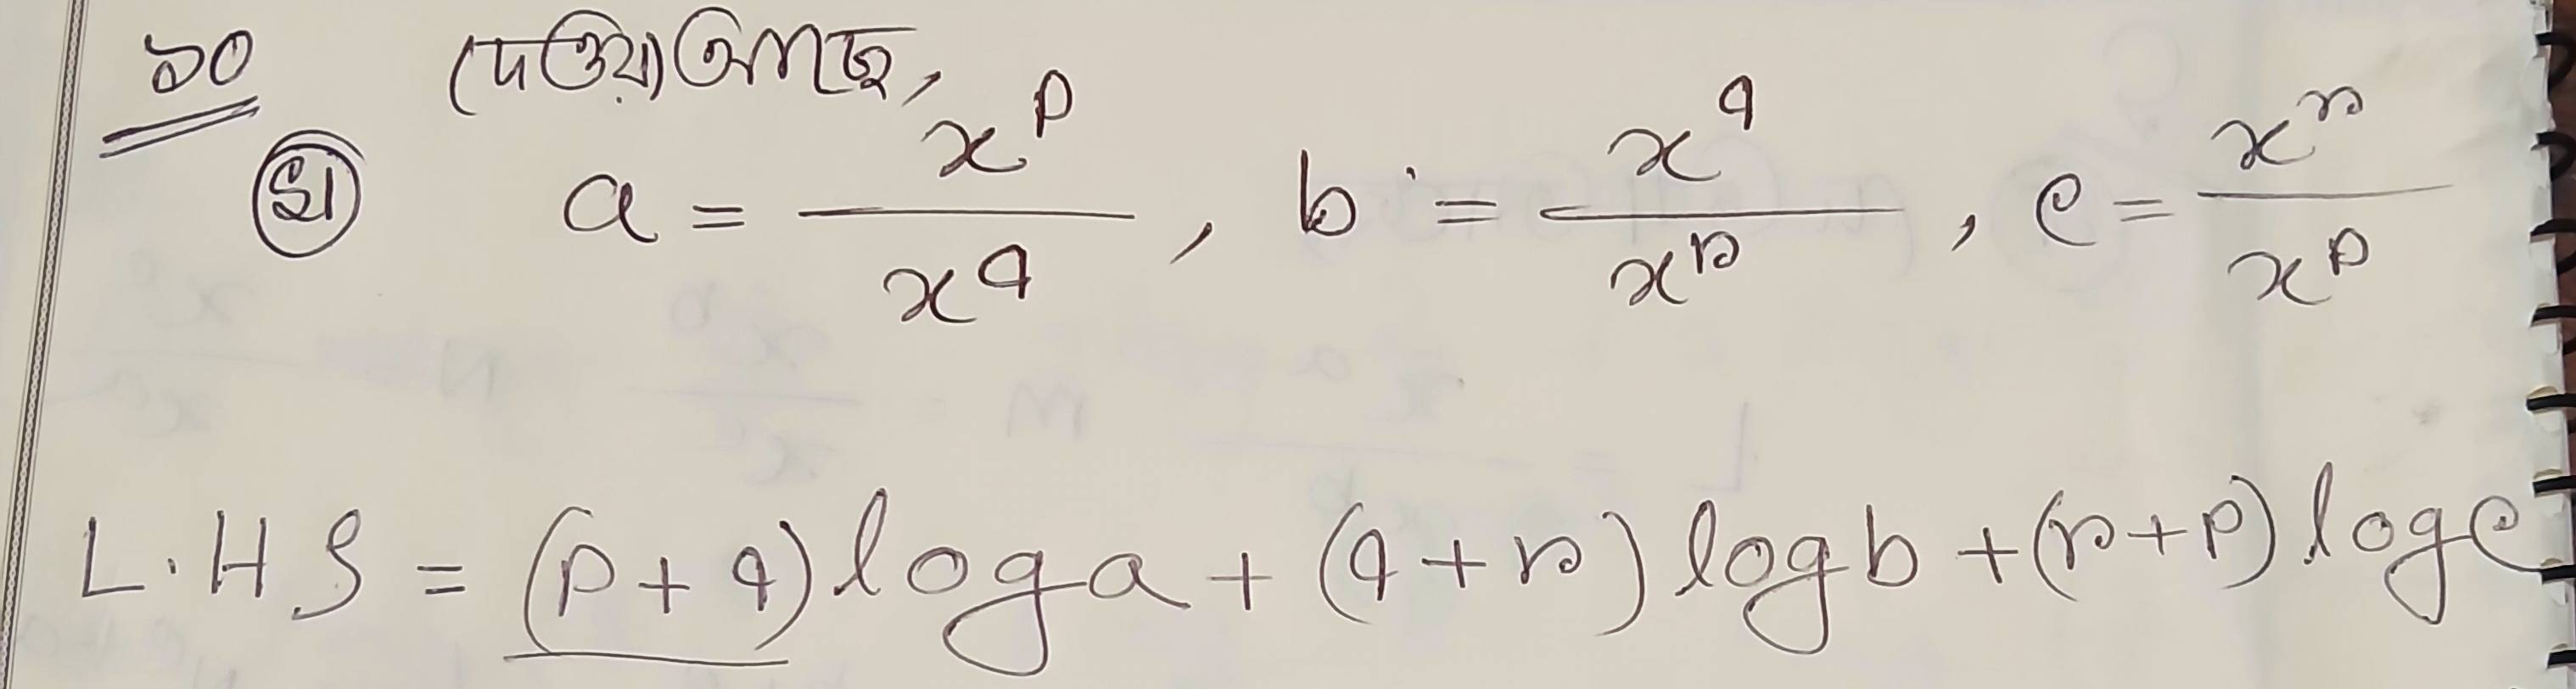 ১০ দেওয়া আছে,
খ a = x^p / x^q , b = x^q / x^r , c = x^r / x^p
L.H S = (p + q) log a + (q + r) log b + (r + p) log c